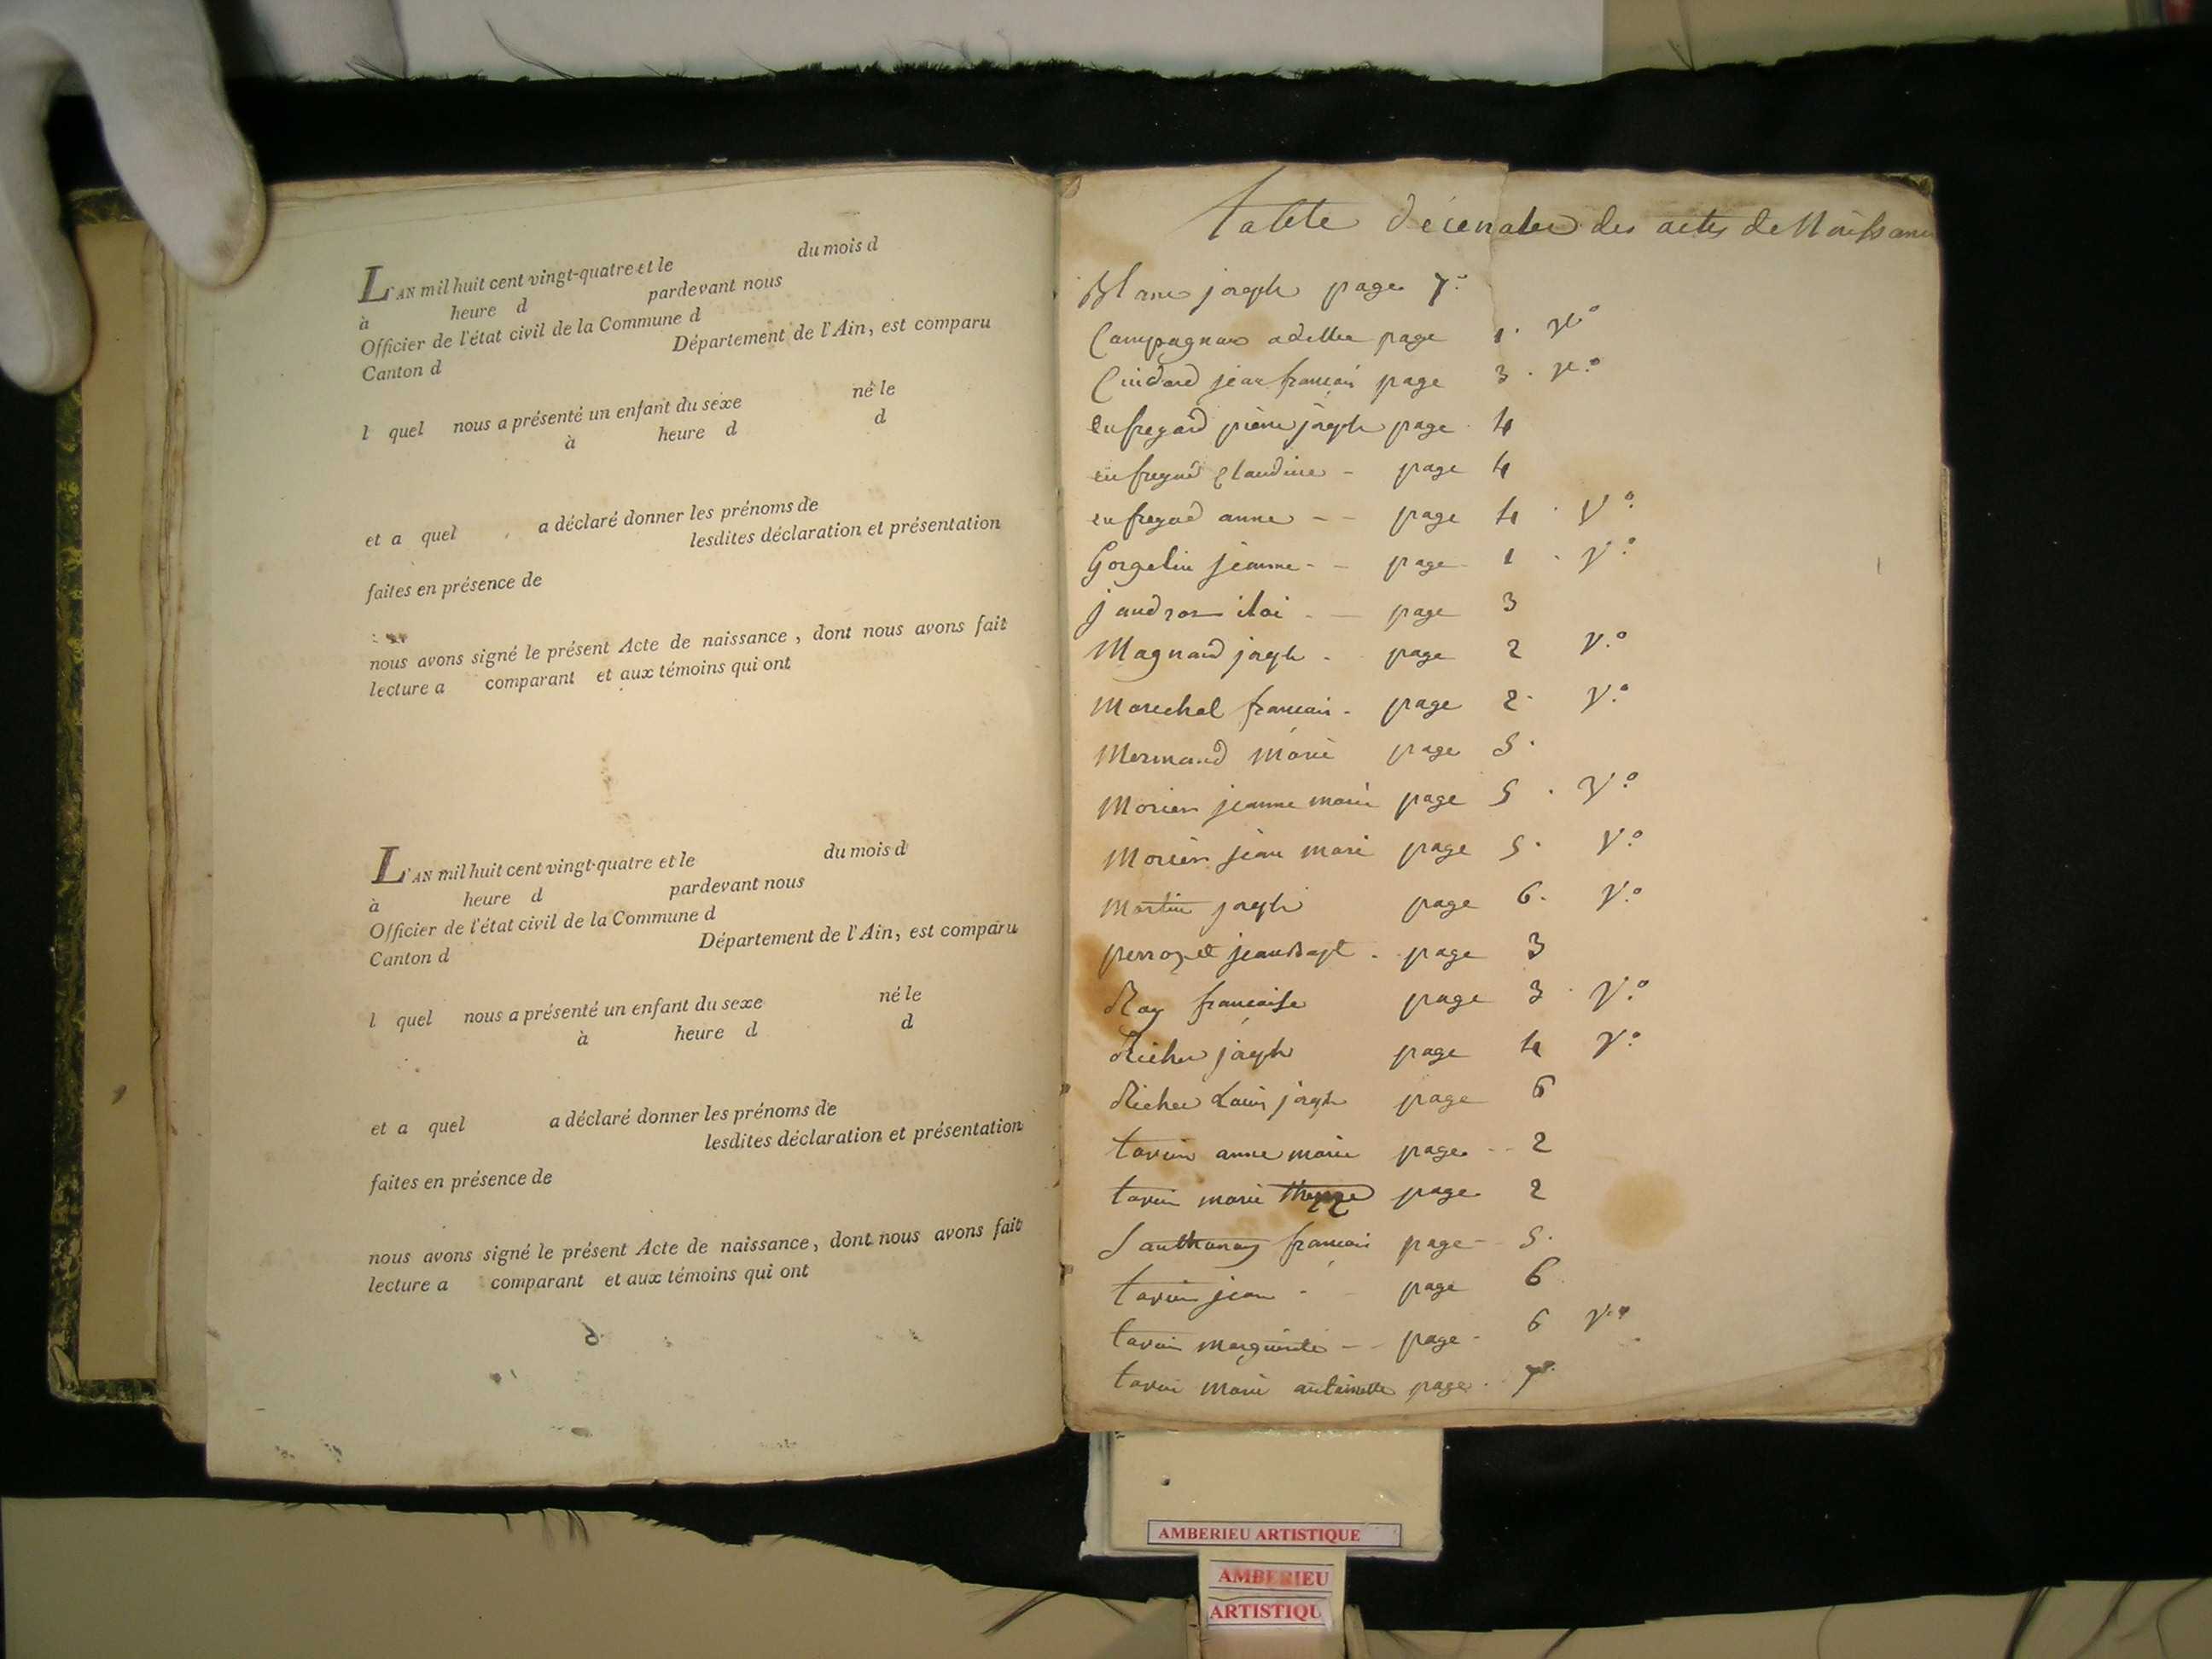 L'AN mil huit cent vingt-quatre et le du mois d
à heure d pardevant nous
Officier de l'état civil de la Commune d
Canton d Département de l'Ain, est comparu
l quel nous a présenté un enfant du sexe né le
à heure d d
et a quel a déclaré donner les prénoms de
lesdites déclaration et présentation
faites en présence de
nous avons signé le présent Acte de naissance, dont nous avons fait
lecture a comparant et aux témoins qui ont
L'AN mil huit cent vingt-quatre et le du mois d
à heure d pardevant nous
Officier de l'état civil de la Commune d
Canton d Département de l'Ain, est comparu
l quel nous a présenté un enfant du sexe né le
à heure d d
et a quel a déclaré donner les prénoms de
lesdites déclaration et présentation
faites en présence de
nous avons signé le présent Acte de naissance, dont nous avons fait
lecture a comparant et aux témoins qui ont
des actes de Naissance
Blanc joseph page 7
adelle page 1 vo
jean francois page 3 vo
enfregard pierre joseph page 4
enfregard Claudine - page 4
enfregad anne - - page 4 Vo
Gorgelin jeanne - - page 1 vo
page 3
Magnard joseph - page 2 vo
Marechal francois - page 2 vo
Mermand Marie page 5
Morier jeanne marie page 5 vo
Morier jean marie page 5 vo
Martin joseph page 6 vo
perrozet jean Bapt. page 3
Ray francoise page 3 vo
joseph page 4 vo
Louis joseph page 6
tavin anne marie page - - 2
tavin marie page 2
francois page - 5
tavin jean - page 6
tavin marguerite - - page - 6 vo
tavin marie antoinette page 7
AMBERIEU ARTISTIQUE
AMBERIEU
ARTISTIQU